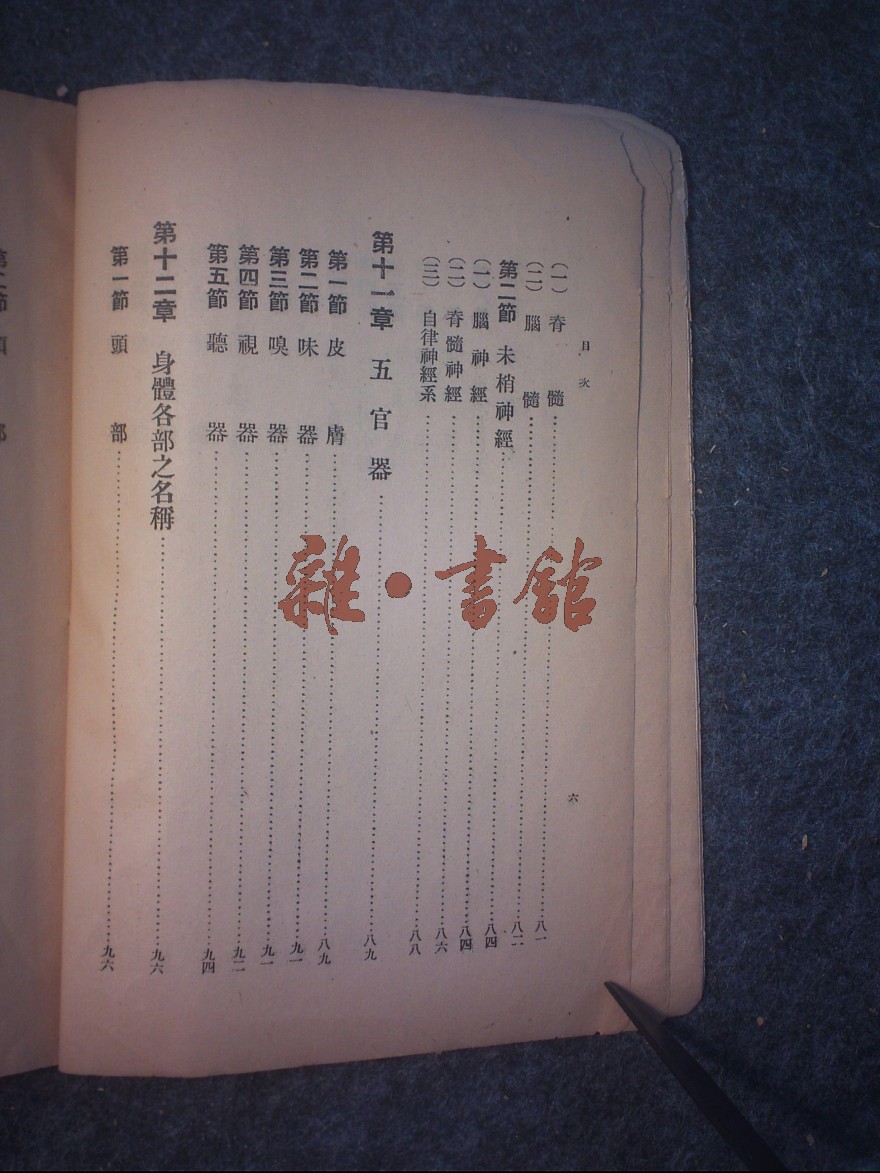 目次
六
(一) 脊髓……八一
(二) 腦髓……八二
第二節 未梢神經……八四
(一) 腦神經……八四
(二) 脊髓神經……八六
(三) 自律神經系……八八
第十一章 五官器……八九
第一節 皮膚……八九
第二節 味器……九一
第三節 嗅器……九一
第四節 視器……九二
第五節 聽器……九四
第十二章 身體各部之名稱……九六
第一節 頭部……九六
雜·書館